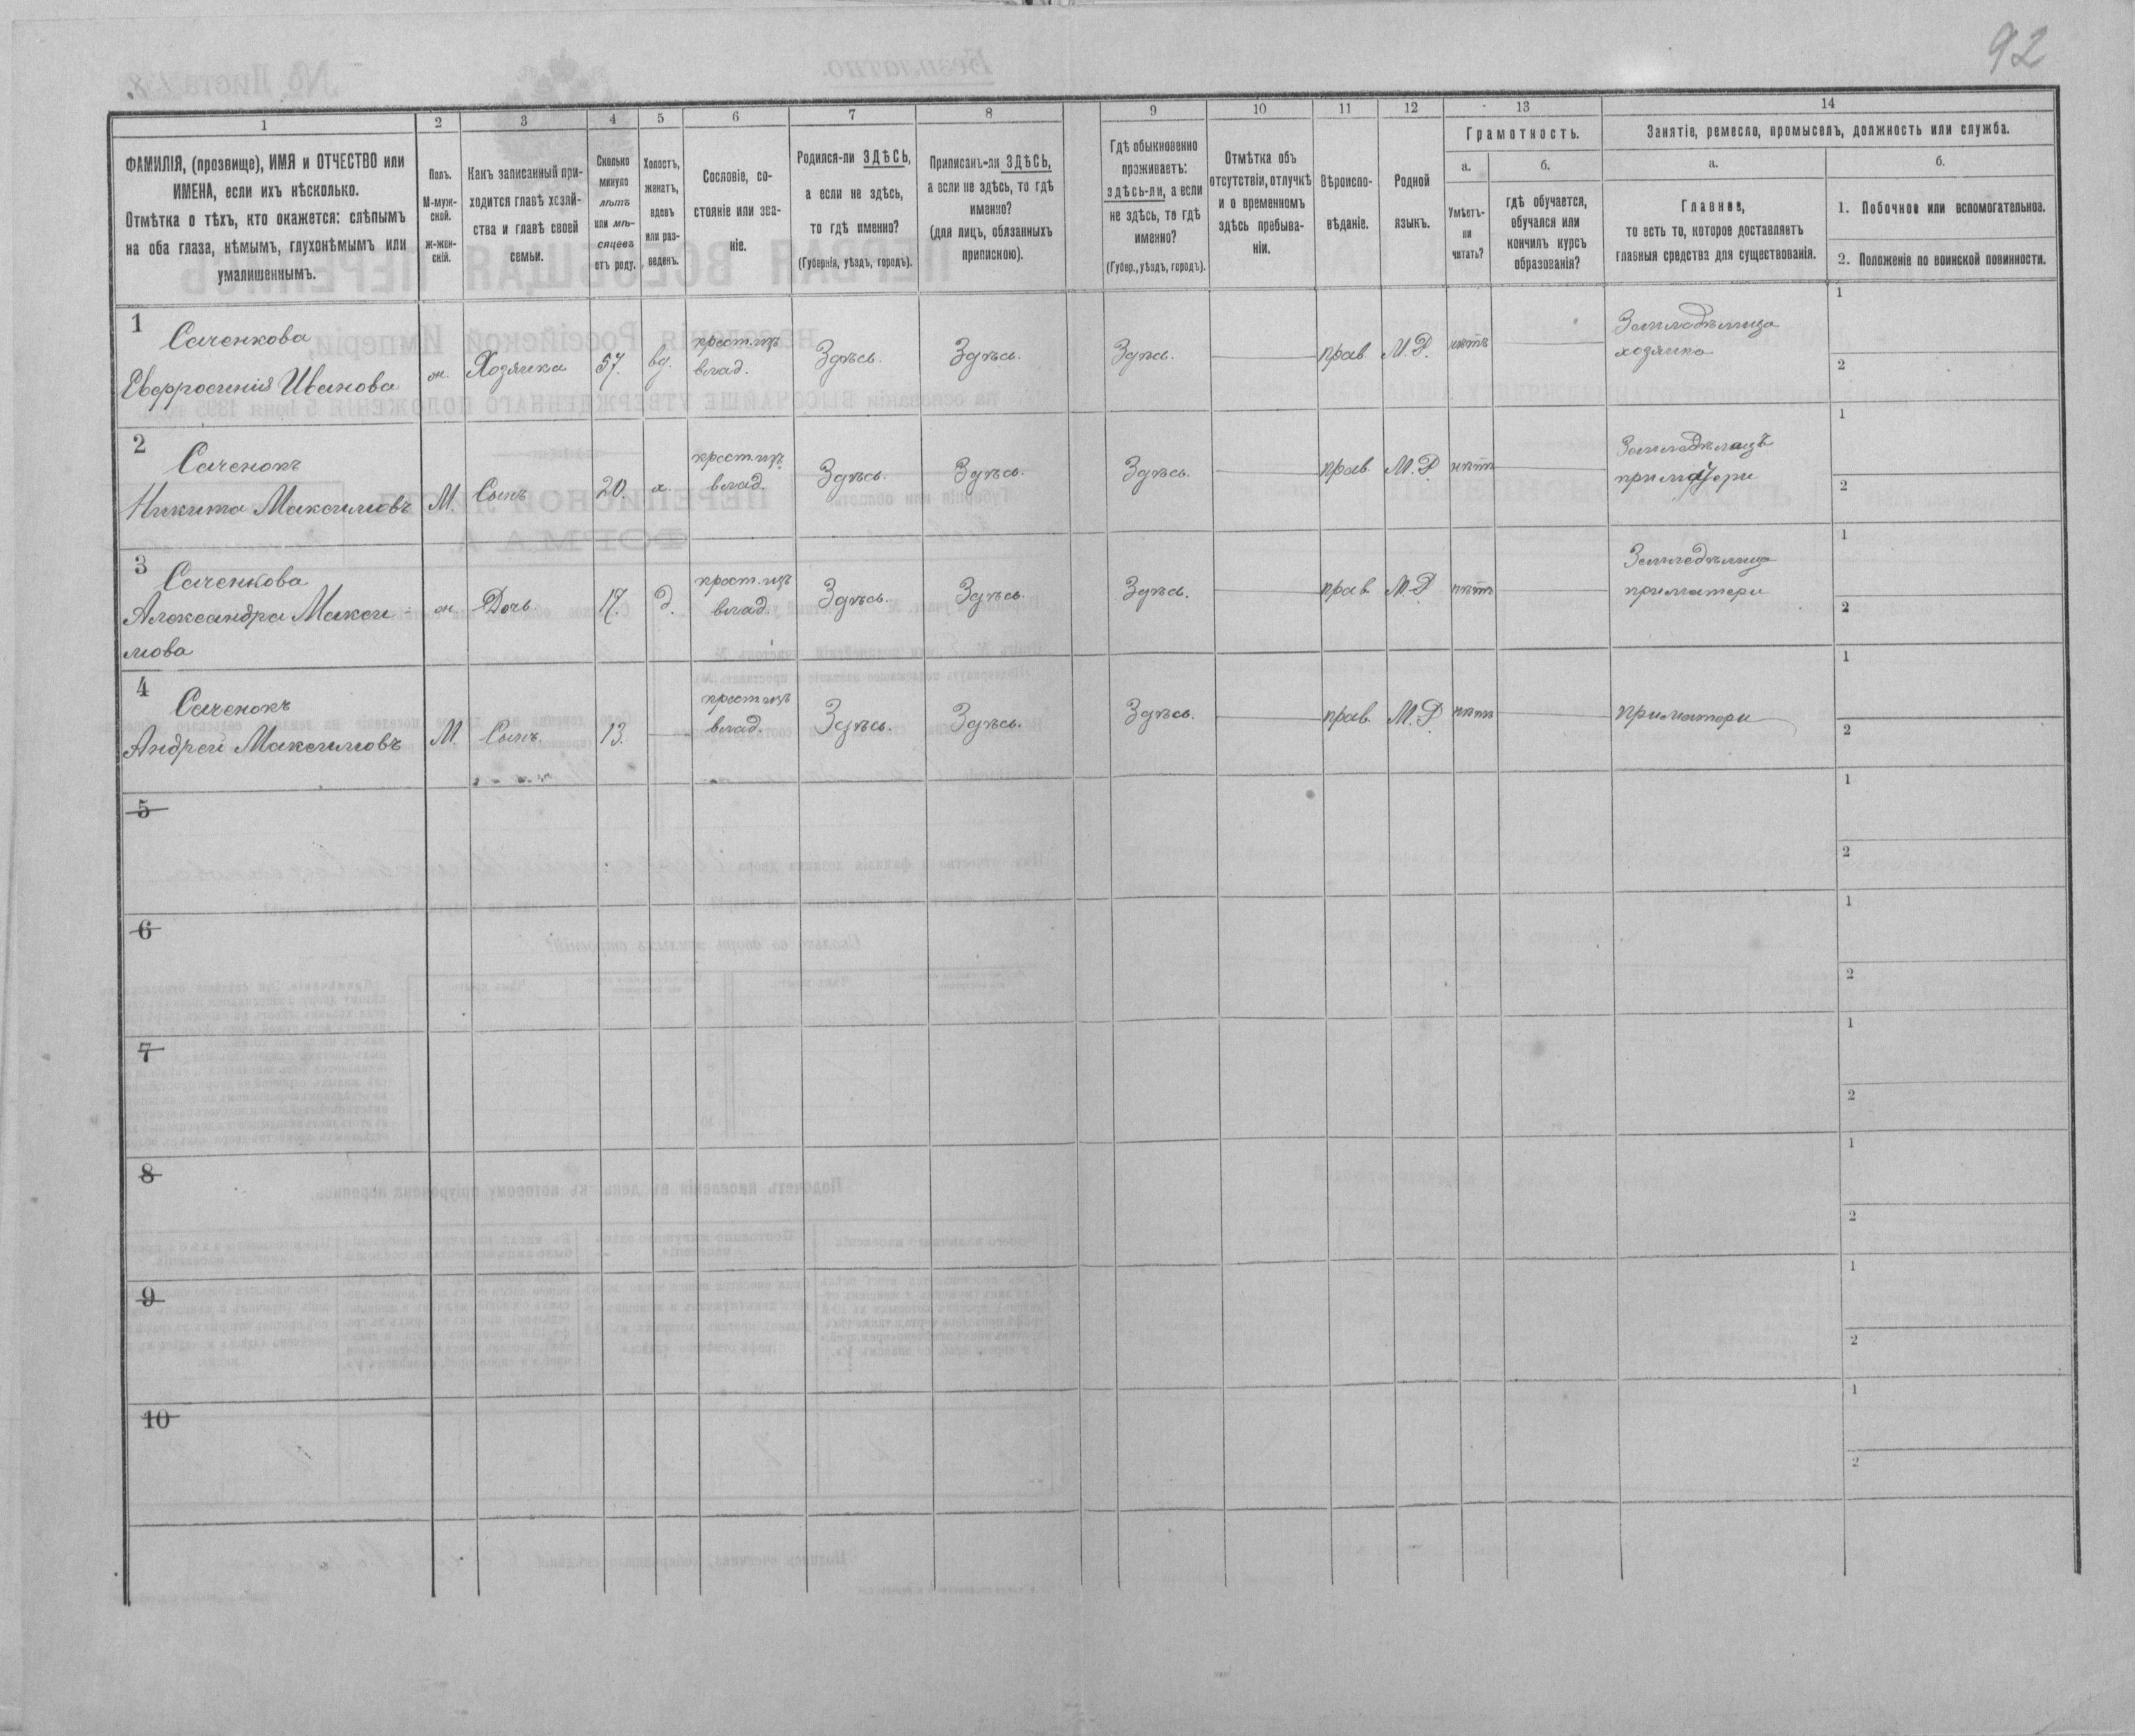 92
1
2
3
4
5
6
7
8
9
10
11
12
13
14
ФАМИЛІЯ, (прозвище), ИМЯ и ОТЧЕСТВО или
ИМЕНА, если ихъ нѣсколько.
Отмѣтка о тѣхъ, кто окажется: слѣпымъ
на оба глаза, нѣмымъ, глухонѣмымъ или
умалишеннымъ.
Полъ.
М-муж-
ской.
ж-жен-
скій.
Какъ записанный при-
ходится главѣ хозяй-
ства и главѣ своей
семьи.
Сколько
минуло
лѣтъ
или мѣ-
сяцевъ
отъ роду.
Холостъ,
женатъ,
вдовъ
или раз-
веденъ.
Сословіе, со-
стояніе или зва-
ніе.
Родился-ли ЗДѢСЬ,
а если не здѣсь,
то гдѣ именно?
(Губернія, уѣздъ, городъ).
Приписанъ-ли ЗДѢСЬ,
а если не здѣсь, то гдѣ
именно?
(для лицъ, обязанныхъ
припискою).
Гдѣ обыкновенно
проживаетъ:
здѣсь-ли, а если
не здѣсь, то гдѣ
именно?
(Губер., уѣздъ, городъ).
Отмѣтка объ
отсутствіи, отлучкѣ
и о временномъ
здѣсь пребыва-
ніи.
Вѣроиспо-
вѣданіе.
Родной
языкъ.
Грамотность.
а.
Умѣетъ-
ли
читать?
б.
гдѣ обучается,
обучался или
кончилъ курсъ
образованія?
Занятіе, ремесло, промыселъ, должность или служба.
а.
Главное,
то есть то, которое доставляетъ
главныя средства для существованія.
б.
1. Побочное или вспомогательное.
2. Положеніе по воинской повинности.
1
Саченкова
Евфросинія Иванова
ж.
Хозяйка
57.
вд.
крест. изъ
влад.
Здѣсь.
Здѣсь.
Здѣсь.
прав.
М. Р.
нѣтъ
Земледѣлица
хозяйка
1
2
2
Саченокъ
Никита Максимовъ
М.
Сынъ
20.
х.
крест. изъ
влад.
Здѣсь.
Здѣсь.
Здѣсь.
прав.
М. Р.
нѣтъ
Земледѣлецъ
при матери
1
2
3
Саченкова
Александра Макси-
мова
ж.
Дочь.
17.
д.
крест. изъ
влад.
Здѣсь.
Здѣсь.
Здѣсь.
прав.
М. Р.
нѣтъ
Земледѣлица
при матери
1
2
4
Саченокъ
Андрей Максимовъ
М.
Сынъ.
13.
крест. изъ
влад.
Здѣсь.
Здѣсь.
Здѣсь.
прав.
М. Р.
нѣтъ
при матери
1
2
5
1
2
6
1
2
7
1
2
8
1
2
9
1
2
10
1
2